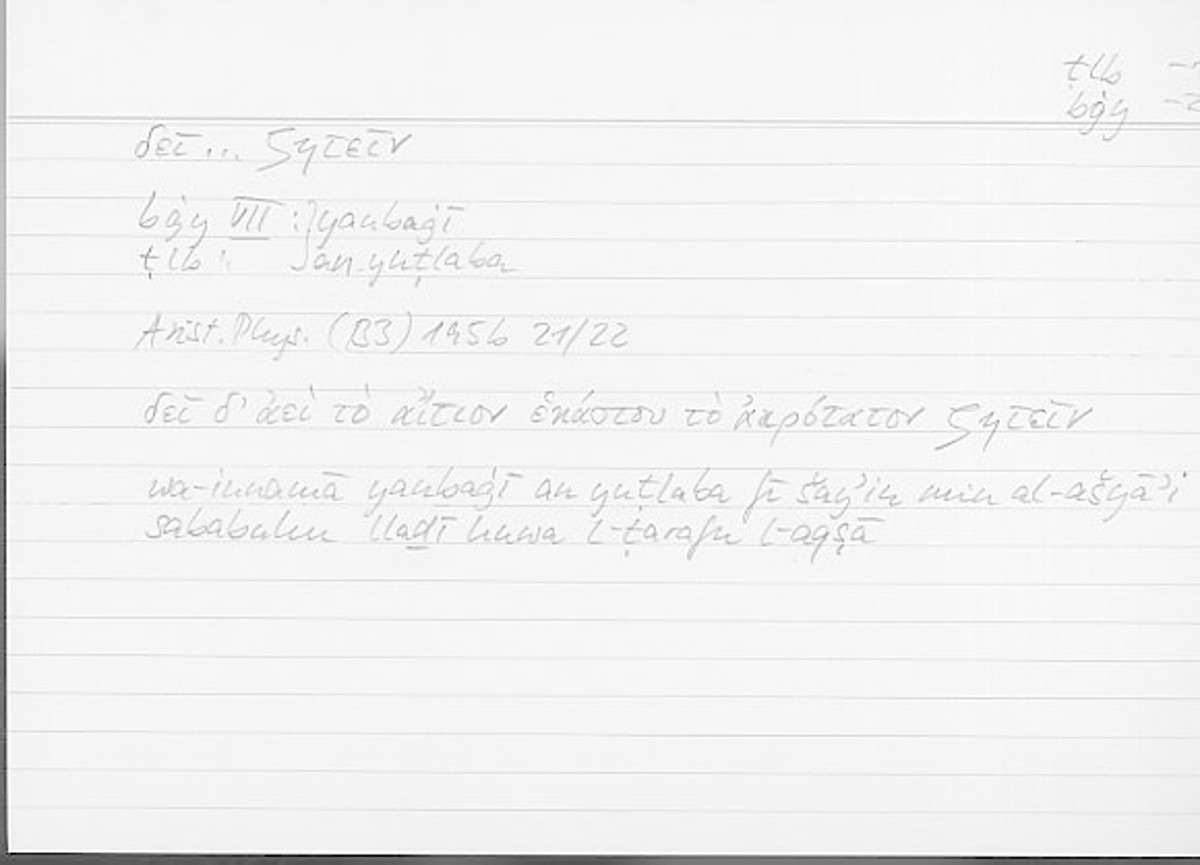 ṭlb
bġy
δεῖ ... ζητεῖν
bġy VII : } yanbaġī
ṭlb : } an yuṭlaba
Arist. Phys. (B3) 195b 21/22
δεῖ δ' ἀεὶ τὸ αἴτιον ἑκάστου τὸ ἀκρότατον ζητεῖν
wa-innamā yanbaġī an yuṭlaba fī šay'in min al-ašyā'i
sababuhu llaḏī huwa l-ṭarafu l-aqṣā